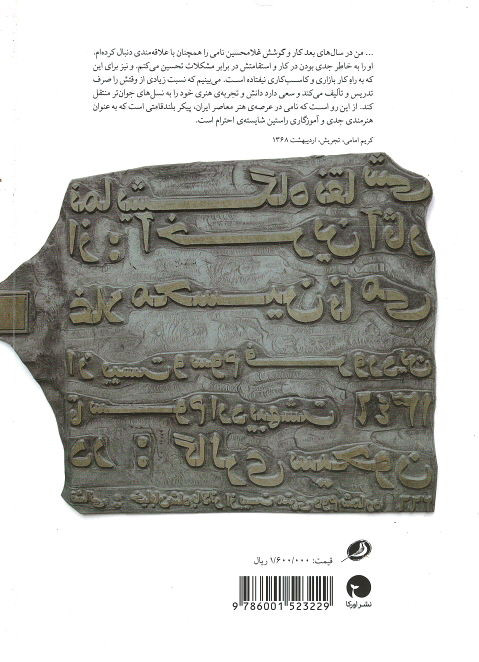 ... من در سال‌های بعد کار و کوشش غلامحسین نامی را همچنان با علاقه‌مندی دنبال کرده‌ام،
او را به خاطر جدی بودن در کار و استقامتش در برابر مشکلات تحسین می‌کنم، و نیز برای این
که به راهِ کار بازاری و کاسب‌کاری نیفتاده است. می‌بینیم که نسبت زیادی از وقتش را صرف
تدریس و تألیف می‌کند و سعی دارد دانش و تجربه‌ی هنری خود را به نسل‌های جوان‌تر منتقل
کند. از این رو است که نامی در عرصه‌ی هنر معاصر ایران، پیکر بلندقامتی است که به عنوان
هنرمندی جدی و آموزگاری راستین شایسته‌ی احترام است.
کریم امامی، تجریش، اردیبهشت ۱۳۶۸
نمایشگاه نقاشی
از : آخرین آثار
غلامحسین نامی
از بیست و سوم فروردین
تا سوم اردیبهشت ۱۳۴۶
در : گالری سیحون
قیمت: ۱/۶۰۰/۰۰۰ ریال
نشر اورکا
9 786001 523229